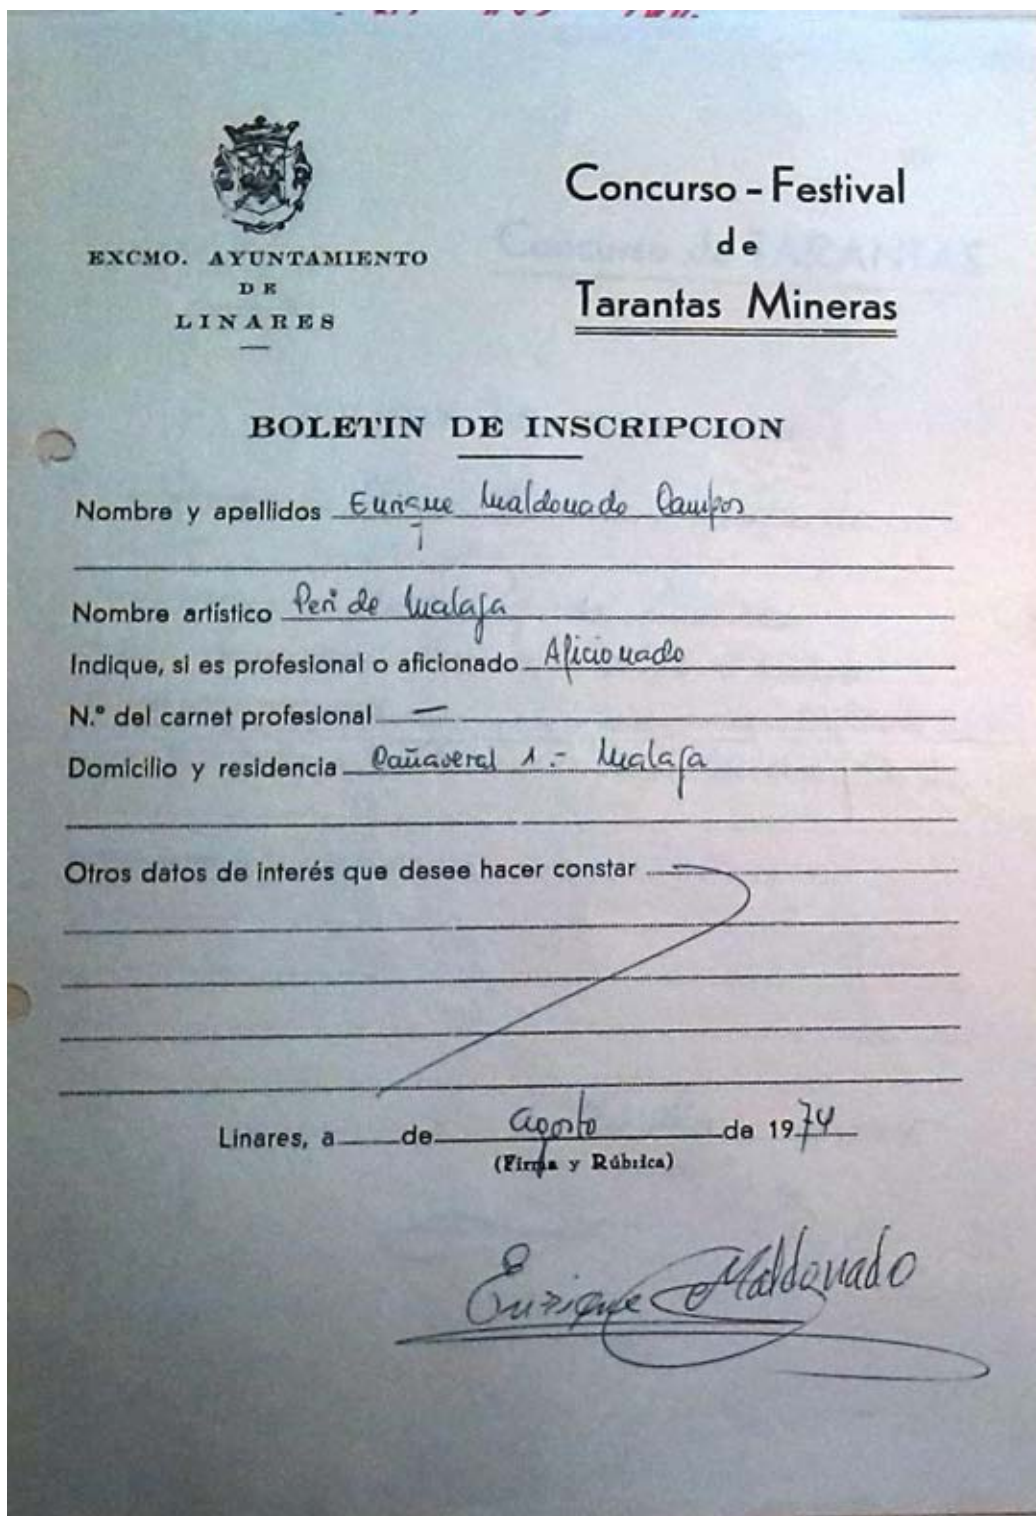 EXCMO. AYUNTAMIENTO
DE
LINARES
Concurso - Festival
de
Tarantas Mineras
BOLETIN DE INSCRIPCION
Nombre y apellidos Enrique Maldonado Campos
Nombre artístico Peri de Malaga
Indique, si es profesional o aficionado Aficionado
N.º del carnet profesional —
Domicilio y residencia Cañaveral 1.- Malaga
Otros datos de interés que desee hacer constar
Linares, a de agosto de 1974
(Firma y Rúbrica)
Enrique Maldonado